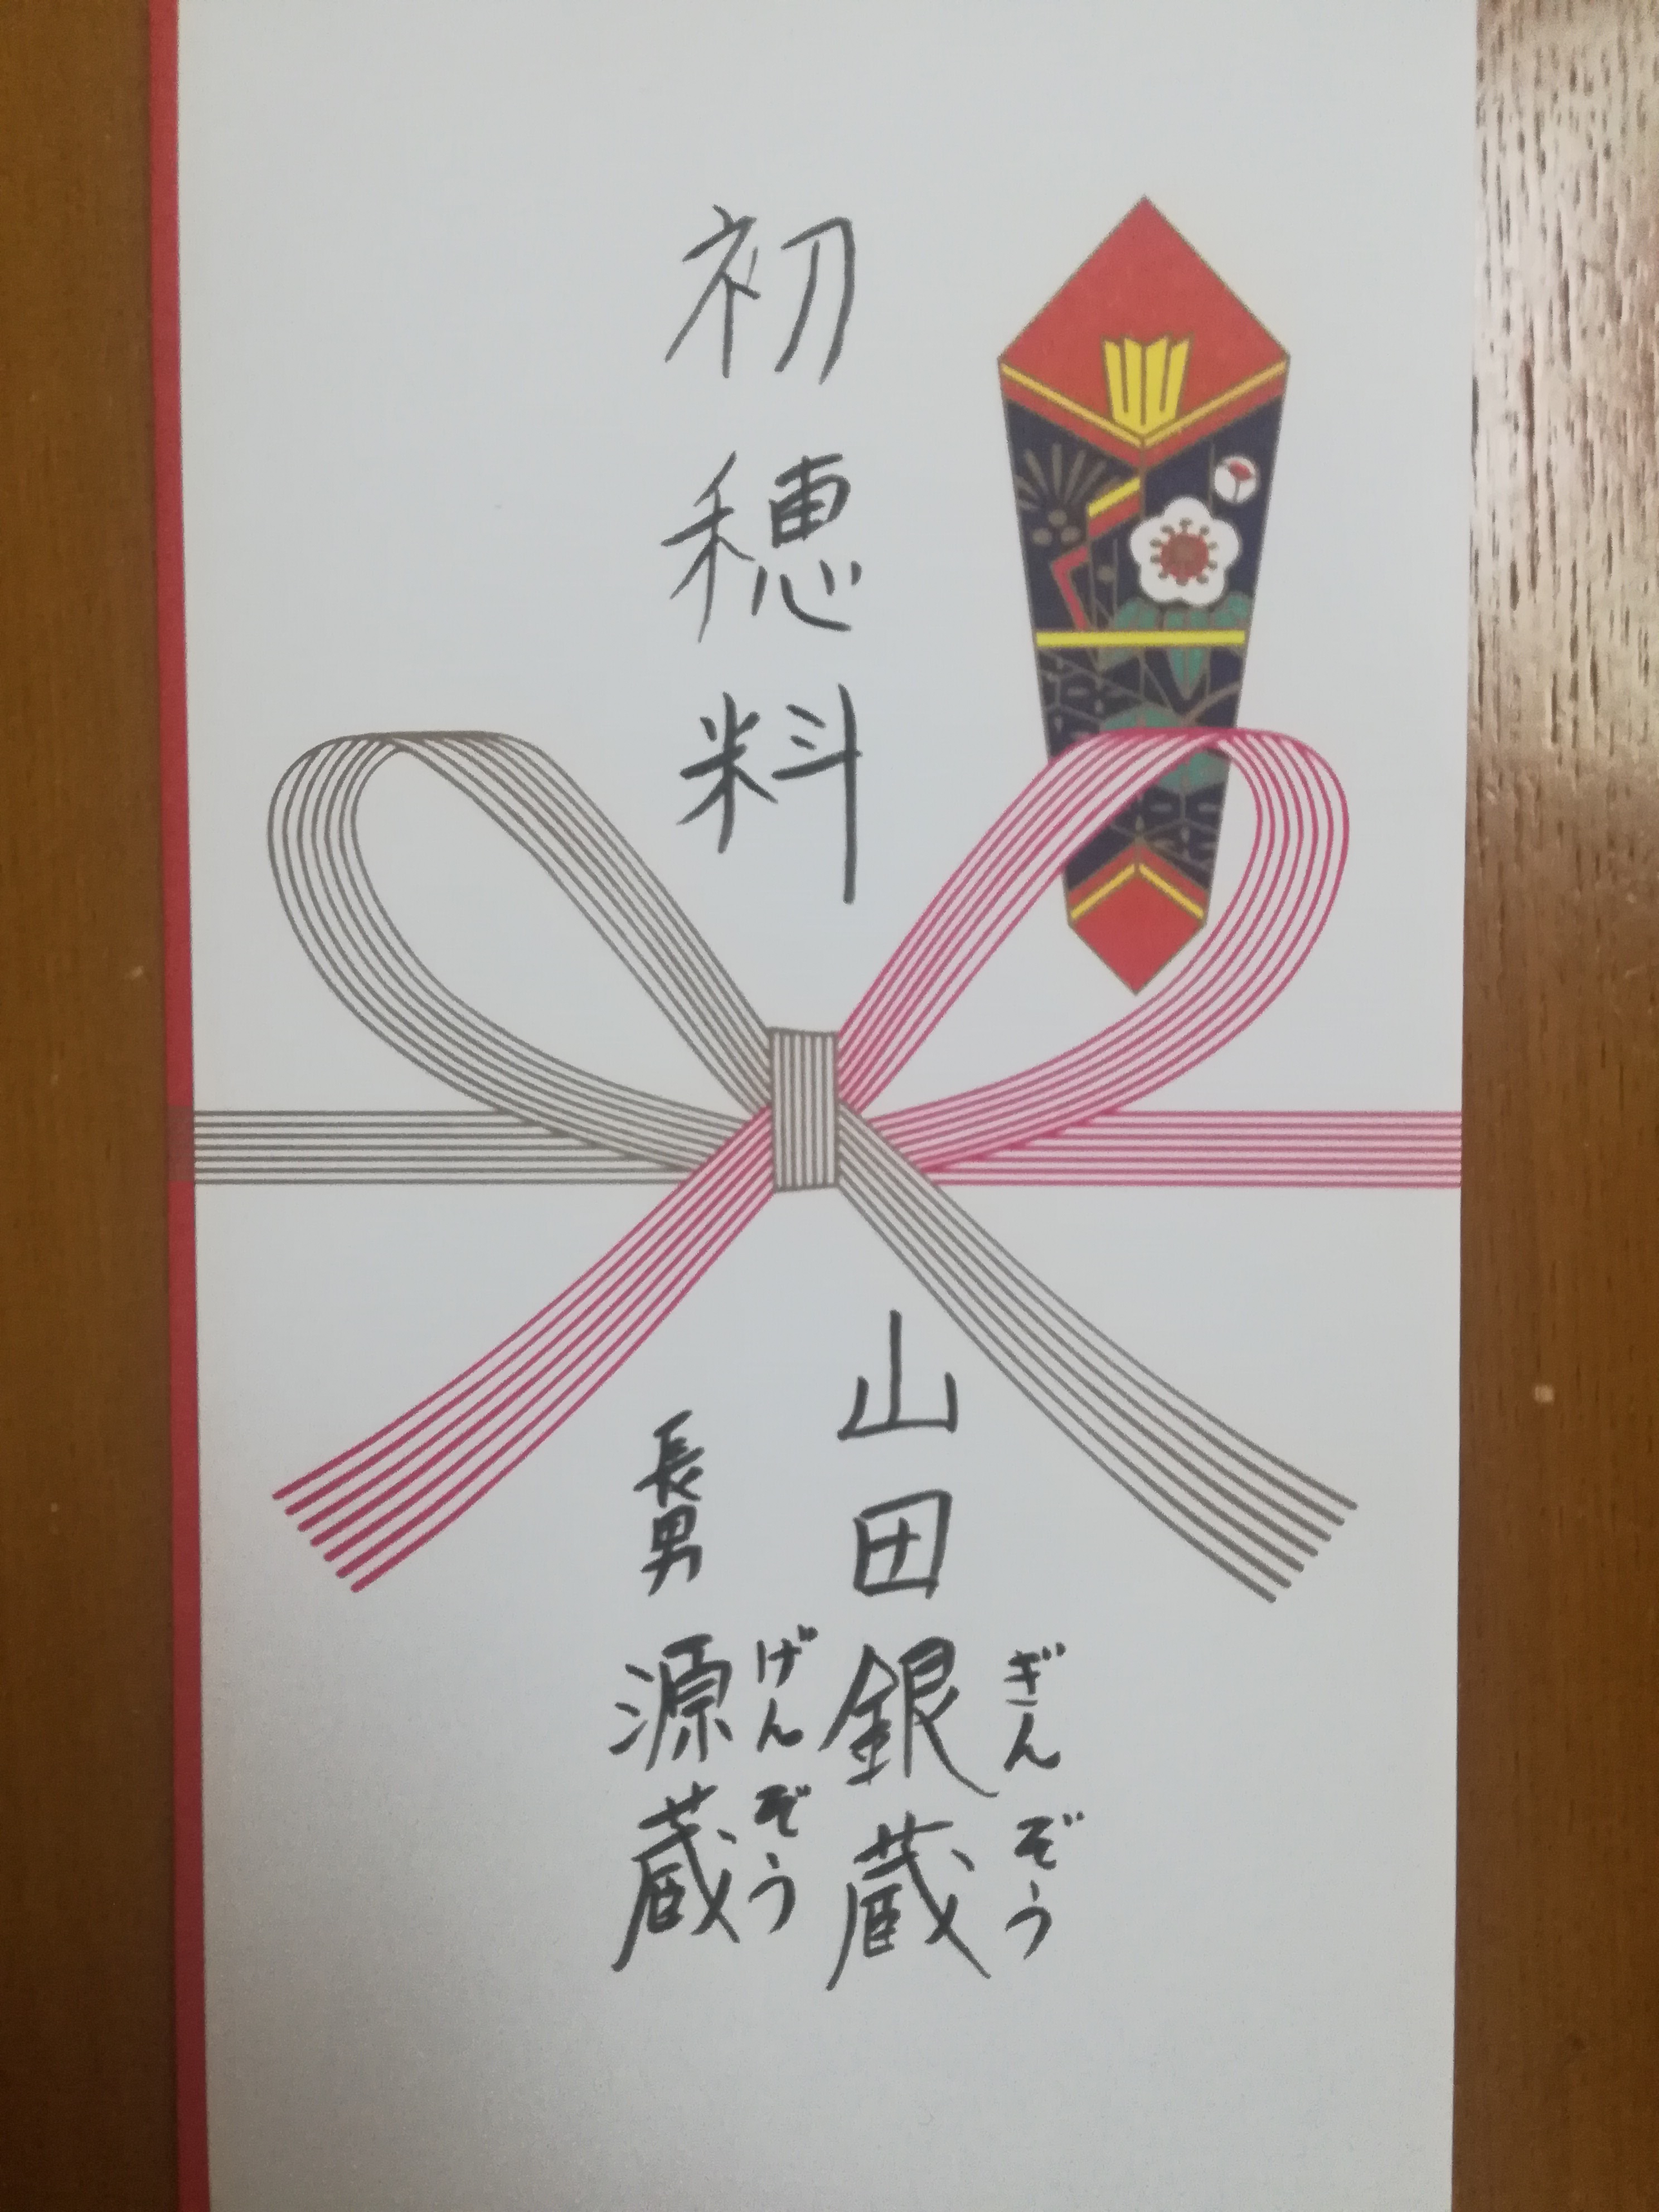 初穂料
山田銀蔵
ぎんぞう
長男源蔵
げんぞう